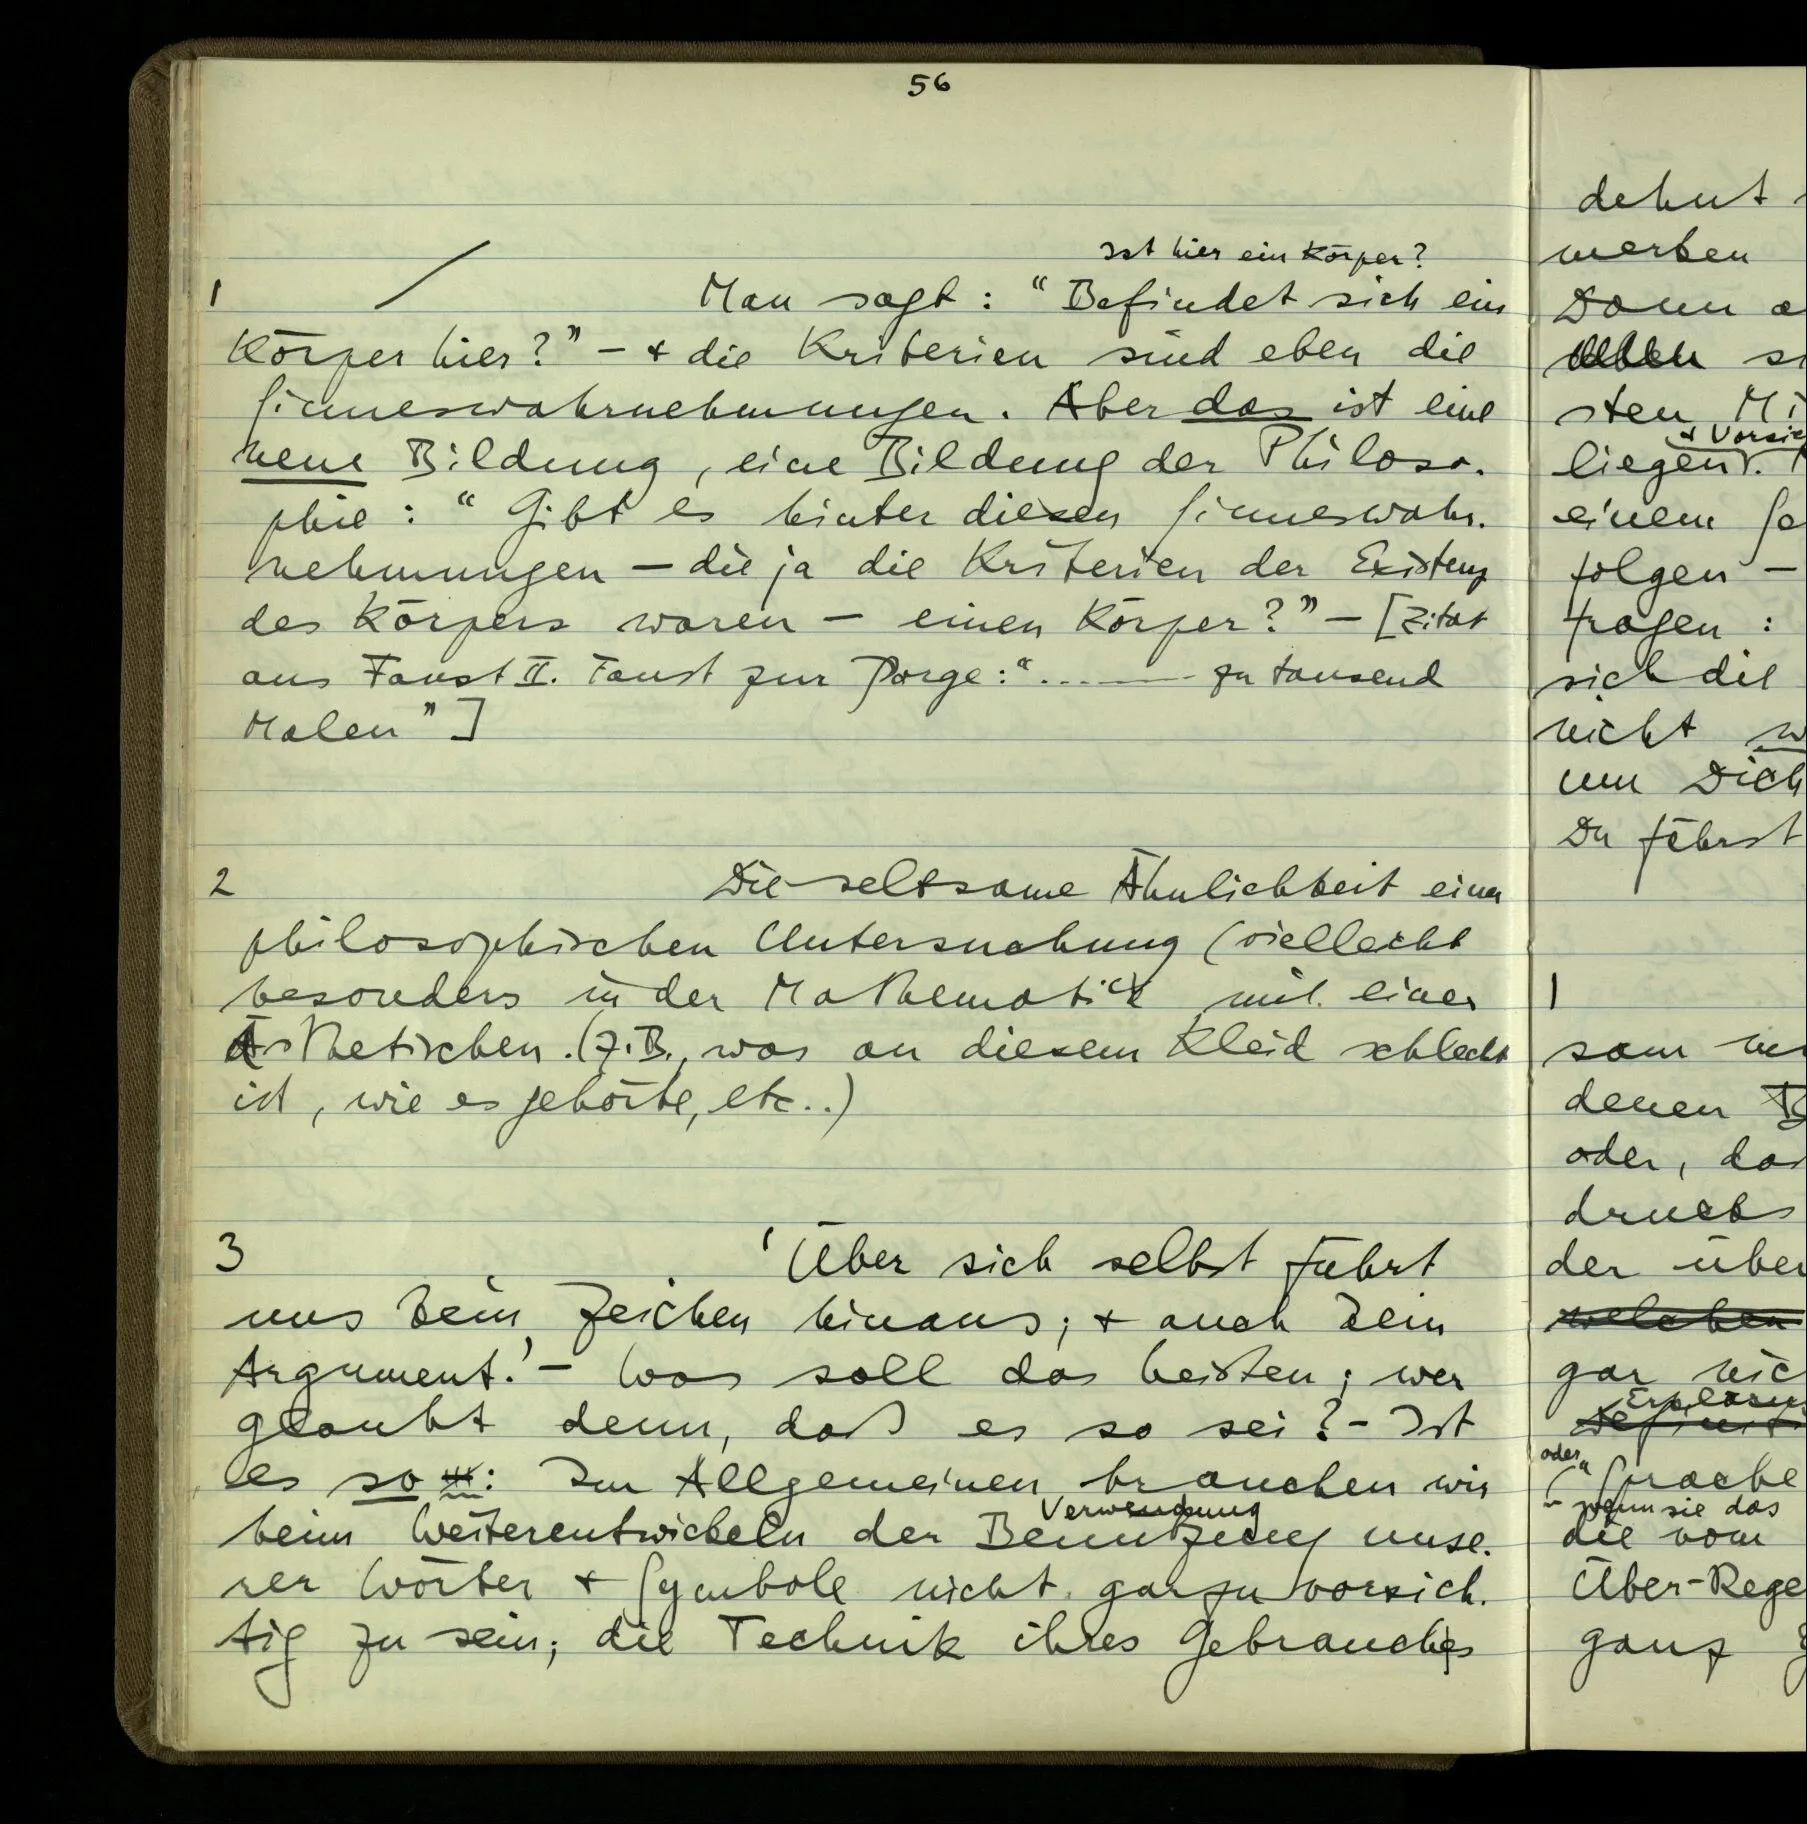 56
Ist hier ein Körper?
1 / Man sagt: “Befindet sich ein
Körper hier?” – + die Kriterien sind eben die
Sinneswahrnehmungen. Aber das ist eine
neue Bildung, eine Bildung der Philoso-
phie: “Gibt es hinter diesen Sinneswahr-
nehmungen – die ja die Kriterien der Existenz
des Körpers waren – einen Körper?” – [Zitat
aus Faust II. Faust zur Sorge: “....–––– zu tausend
Malen”]
2 Die seltsame Ähnlichkeit einer
philosophischen Untersuchung (vielleicht
besonders in der Mathematik mit einer
Ästhetischen. (Z.B., was an diesem Kleid schlecht
ist, wie es gehörte, etc..)
3 ‘Über sich selbst führt
uns kein Zeichen hinaus; + auch kein
Argument.’ – Was soll das heißen; wer
glaubt denn, daß es so sei? – Ist
es so: Im Allgemeinen brauchen wir
Verwendung
beim Weiterentwickeln der Benutzung unse-
rer Wörter + Symbole nicht gar zu vorsich-
tig zu sein; die Technik ihres Gebrauches
dehnt
werben
Dann
sten
+
liegen.
einem
folgen –
fragen:
sich die
nicht
um Dich
Du fährst
1
sam
denen
oder,
drucks
der über
welchen
gar
oder
Sprache
wenn sie das
die vom
Über-Rege
ganz